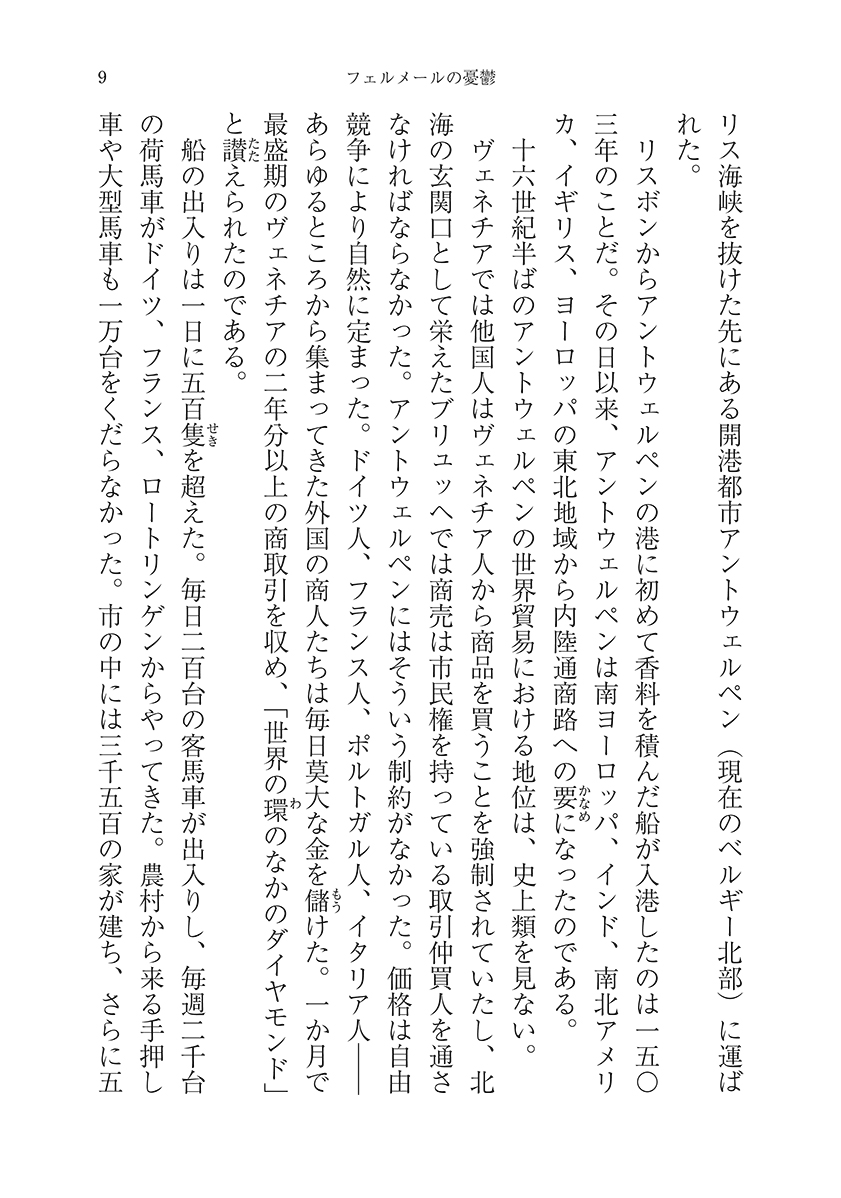 9
フェルメールの憂鬱
リス海峡を抜けた先にある開港都市アントウェルペン（現在のベルギー北部）に運ば
れた。
リスボンからアントウェルペンの港に初めて香料を積んだ船が入港したのは一五〇
三年のことだ。その日以来、アントウェルペンは南ヨーロッパ、インド、南北アメリ
カ、イギリス、ヨーロッパの東北地域から内陸通商路への要になったのである。
かなめ
十六世紀半ばのアントウェルペンの世界貿易における地位は、史上類を見ない。
ヴェネチアでは他国人はヴェネチア人から商品を買うことを強制されていたし、北
海の玄関口として栄えたブリュッヘでは商売は市民権を持っている取引仲買人を通さ
なければならなかった。アントウェルペンにはそういう制約がなかった。価格は自由
競争により自然に定まった。ドイツ人、フランス人、ポルトガル人、イタリア人――
あらゆるところから集まってきた外国の商人たちは毎日莫大な金を儲けた。一か月で
もう
最盛期のヴェネチアの二年分以上の商取引を収め、「世界の環のなかのダイヤモンド」
わ
と讃えられたのである。
たた
船の出入りは一日に五百隻を超えた。毎日二百台の客馬車が出入りし、毎週二千台
せき
の荷馬車がドイツ、フランス、ロートリンゲンからやってきた。農村から来る手押し
車や大型馬車も一万台をくだらなかった。市の中には三千五百の家が建ち、さらに五